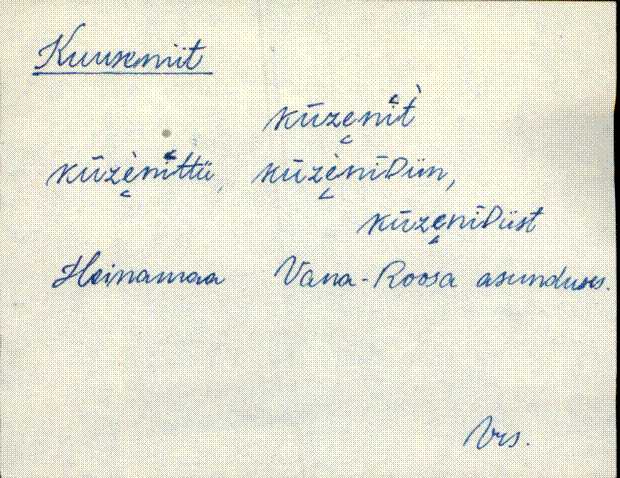 Kuuseniit
kūzenit̀
kūzènittü, kūzènīDün,
kūzenīDüst
Heinamaa Vana-Roosa asunduses.
Vrs.